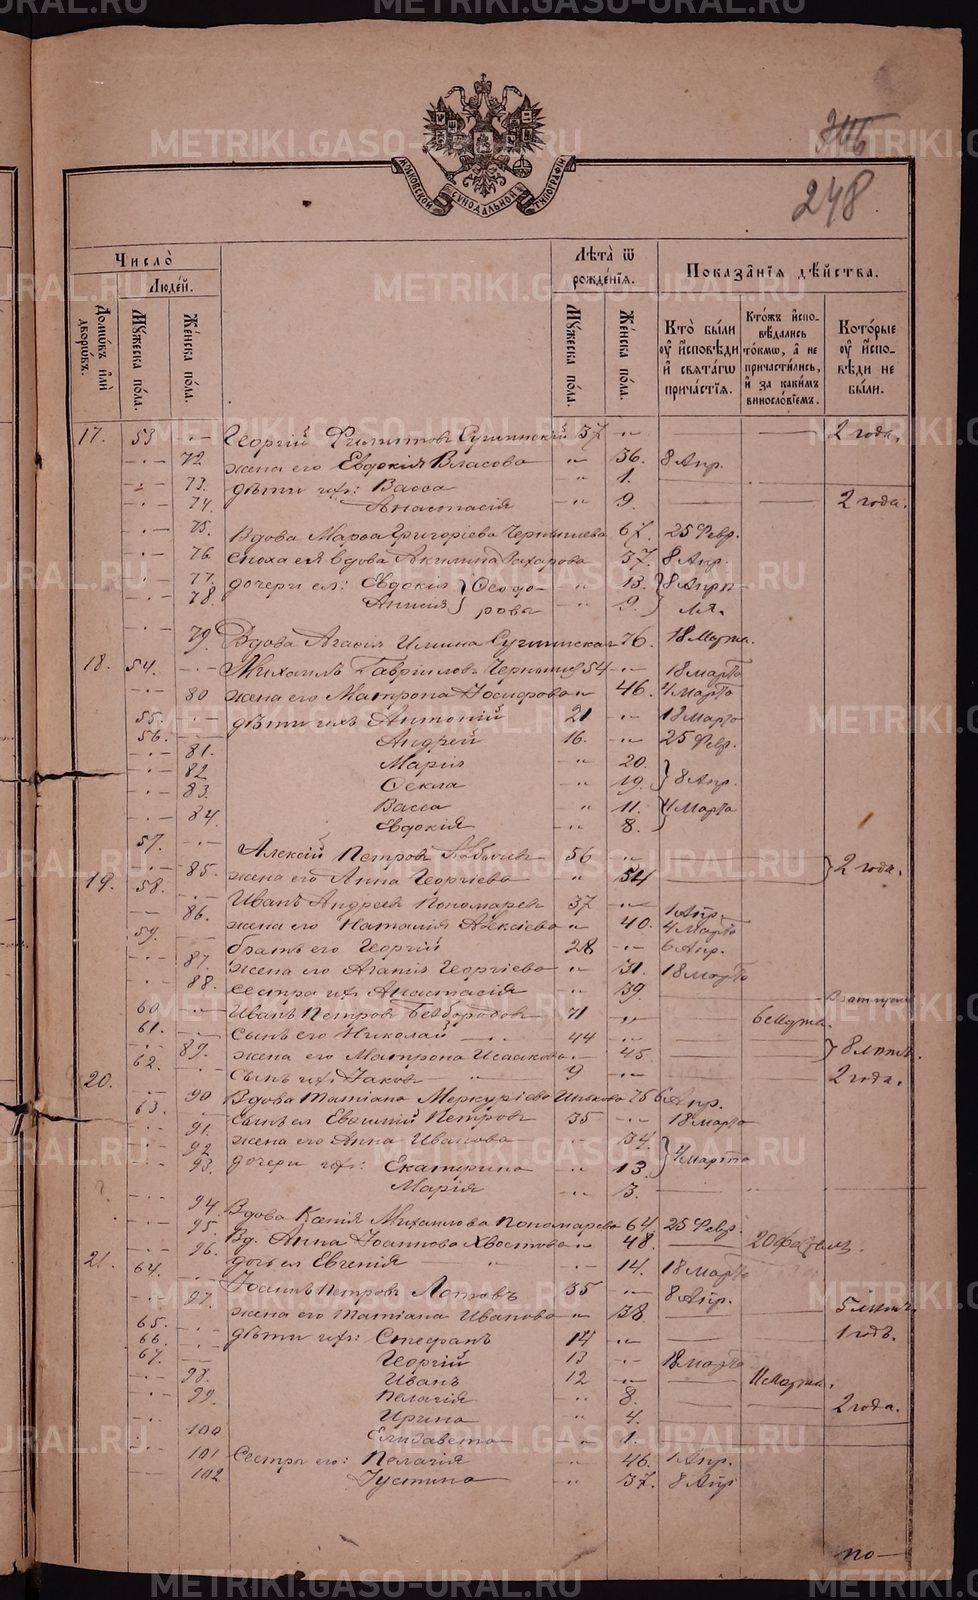 METRIKI.GASO-URAL.RU
346
248
МОСКОВСКОЙ СУНОДАЛЬНОЙ ТИПОГРАФІИ
Число̀
Людéй.
Домѡ́въ и҆лѝ дворѡ́въ.
Мꙋ́жеска по́ла.
Же́нска по́ла.
Лѣ́та ѿ рожде́нїѧ.
Мꙋ́жеска по́ла.
Же́нска по́ла.
Показа̑нїѧ дѣ́йства.
Кто̀ бы́ли ᲂу҆ и҆сповѣ́ди и҆ свѧта́гѡ прича́стїѧ.
Кто́жъ и҆сповѣ́дались то́кмѡ, а҆ не причасти́лись, и҆ за каки́мъ винослові́емъ.
Кото́рые ᲂу҆ и҆сповѣ́ди не бы́ли.
17. 53 Георгій Филиппов Сугинский 37 2 года.
72. жена его Евдокія Власова 36. 8 Апр.
73. дѣти их: Васса 1.
74. Анастасія 9. 2 года.
75. Вдова Марѳа Григоріева Чернышева 67. 25 Февр.
76. сноха ея вдова Акилина Захарова 37. 8 Апр.
77. дочери ея: Евдокія } Ѳеодо- 13. } 8 Апрѣ-
78. Анисія } ровы 9. } ля.
79. Вдова Агаѳія Ильина Сугинская 76. 18 Марта.
18. 54. Михаилъ Гавріиловъ Чернышев 54 18 марта
80 жена его Матрона Іосифова 46. 4 Марта
55. дѣти ихъ Антоній 21 18 марта
56. Андрей 16. 25 Февр.
81. Марія 20.
82 Ѳекла 19. } 8 Апр.
83. Васса 11. 4 Марта
84. Евдокія 8.
57. Алексій Петровъ 56 } 2 года.
85. жена его Анна Георгіева 54
19. 58. Иванъ Андреевъ Пономаревъ 37 1 Апр.
86. жена его Наталія Алексіева 40. 4 Марта
59. братъ его Георгій 28 6 Апр.
87. жена его Агапія Георгіева 31. 18 марта
88. Сестра их Анастасія 39
60. Иванъ Петров Безбородов 71 6 Марта.
61. Сынъ его Николай 44 } 8 лѣтъ.
89. жена его Матрона Исаакова 45
62. сынъ их Іаков 9 2 года.
20. 90 Вдова Татіана Меркуріева 75 6 Апр.
63. Сынъ ея Евѳимій Петровъ 35 18 марта
91. жена его Анна Иванова 34. } 4 марта
92. дочери их: Екатерина 13.
93. Марія 3.
94. Вдова Ксенія Михаилова Пономарева 64. 25 Февр.
95. Вд. Анна Іоаннова Хвостова 48. 20 февраля.
96. дочь ея Евгенія 14. 18 марта
21. 64. Іоаннъ Петровъ 35 8 Апр.
97. жена его Татіана Иванова 38 5 лѣтъ.
65. дѣти их: Стефанъ 14 1 годъ.
66. Георгій 13 18 марта
67. Иванъ 12 11 Марта.
98. Пелагія 8.
99. Ирина 4. 2 года.
100 Елизавета 1.
101 Сестры его: Пелагія 46. 1 Апр.
102 Іустина 37. 8 Апр
по—